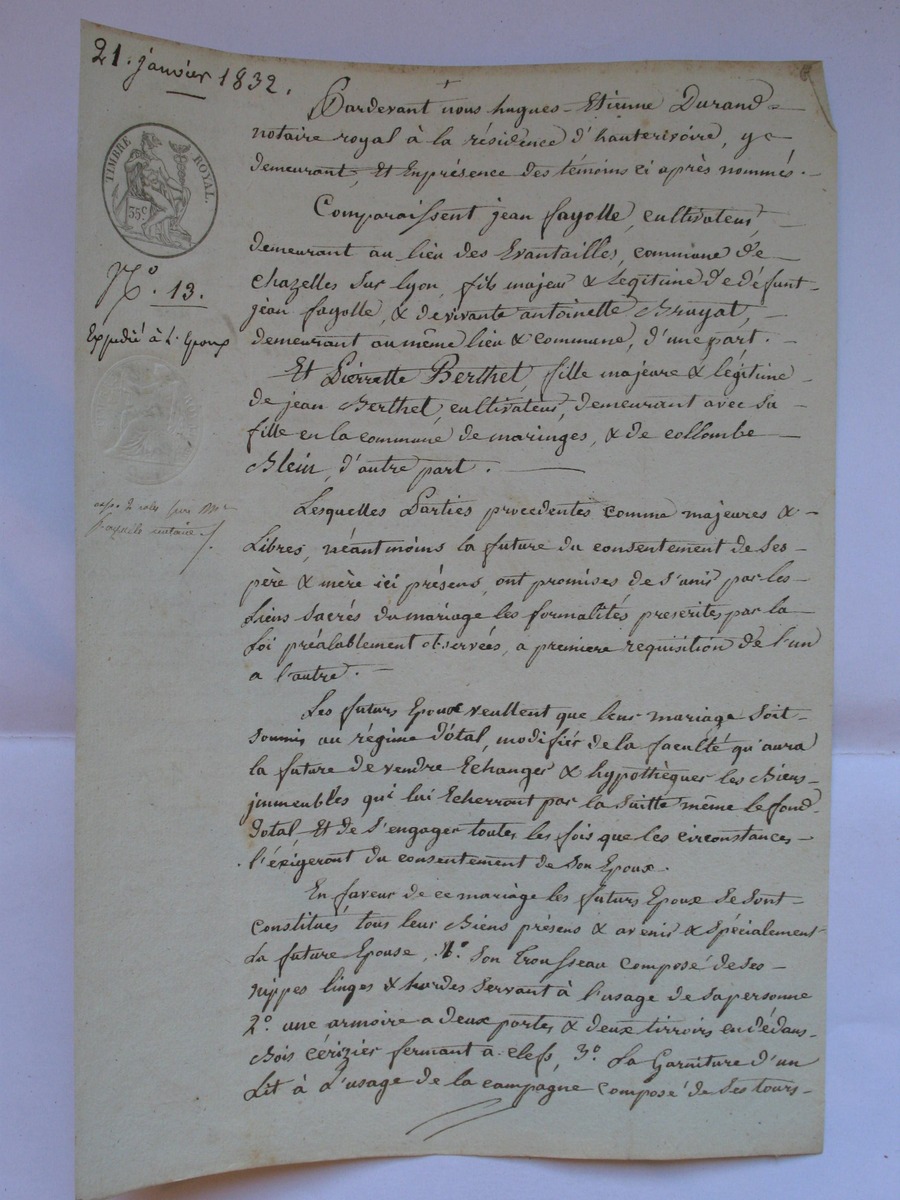 21. janvier 1832.
TIMBRE ROYAL.
35c.
N.o 13.
Expédié à l'Epoux
notaire
Pardevant nous hugues-Etienne Durand
notaire royal à la résidence d'hauterivoire, y
demeurant, Et En présence des témoins ci après nommés.
Comparaissent jean fayolle, cultivateur,
demeurant au lieu des Evantailles, commune de
chazelles sur Lyon, fils majeur & Legitime de défunt
jean fayolle, & de vivante antoinette Bruyat,
demeurant au même lieu & commune, d'une part.
Et Pierrette Berthet, fille majeure & légitime
de jean Berthet, cultivateur, demeurant avec sa
fille en la commune de maringes, & de collombe
Blein, d'autre part.
Lesquelles Parties procedentes comme majeures &
Libres, néantmoins la future du consentement de ses
père & mère ici présens, ont promises de s'unir par les
Liens sacrés du mariage les formalités prescrites par la
Loi préalablement observées, a premiere requisition de l'un
a l'autre.
Les futurs Epoux veullent que leur mariage soit
soumis au régime dôtal, modifiés de la faculté qu'aura
la future de vendre Echanger & hypothèquer les Biens
jmmeubles qui lui Echerront par la suitte même le fond
dotal, Et de s'engager toutes les fois que les circonstances
l'éxigeront du consentement de son Epoux.
En faveur de ce mariage les futurs Epoux se sont
constitués tous leur Biens présens & avenir & spécialement
La future Epouse, 1.o son trousseau composé de ses
nippes linges & hardes servant à l'usage de sa personne
2.o une armoire a deux portes & deux tirroirs en dédans
Bois cérizier fermant a clefs, 3.o La Garniture d'un
Lit à L'usage de la campagne composé de ses tours